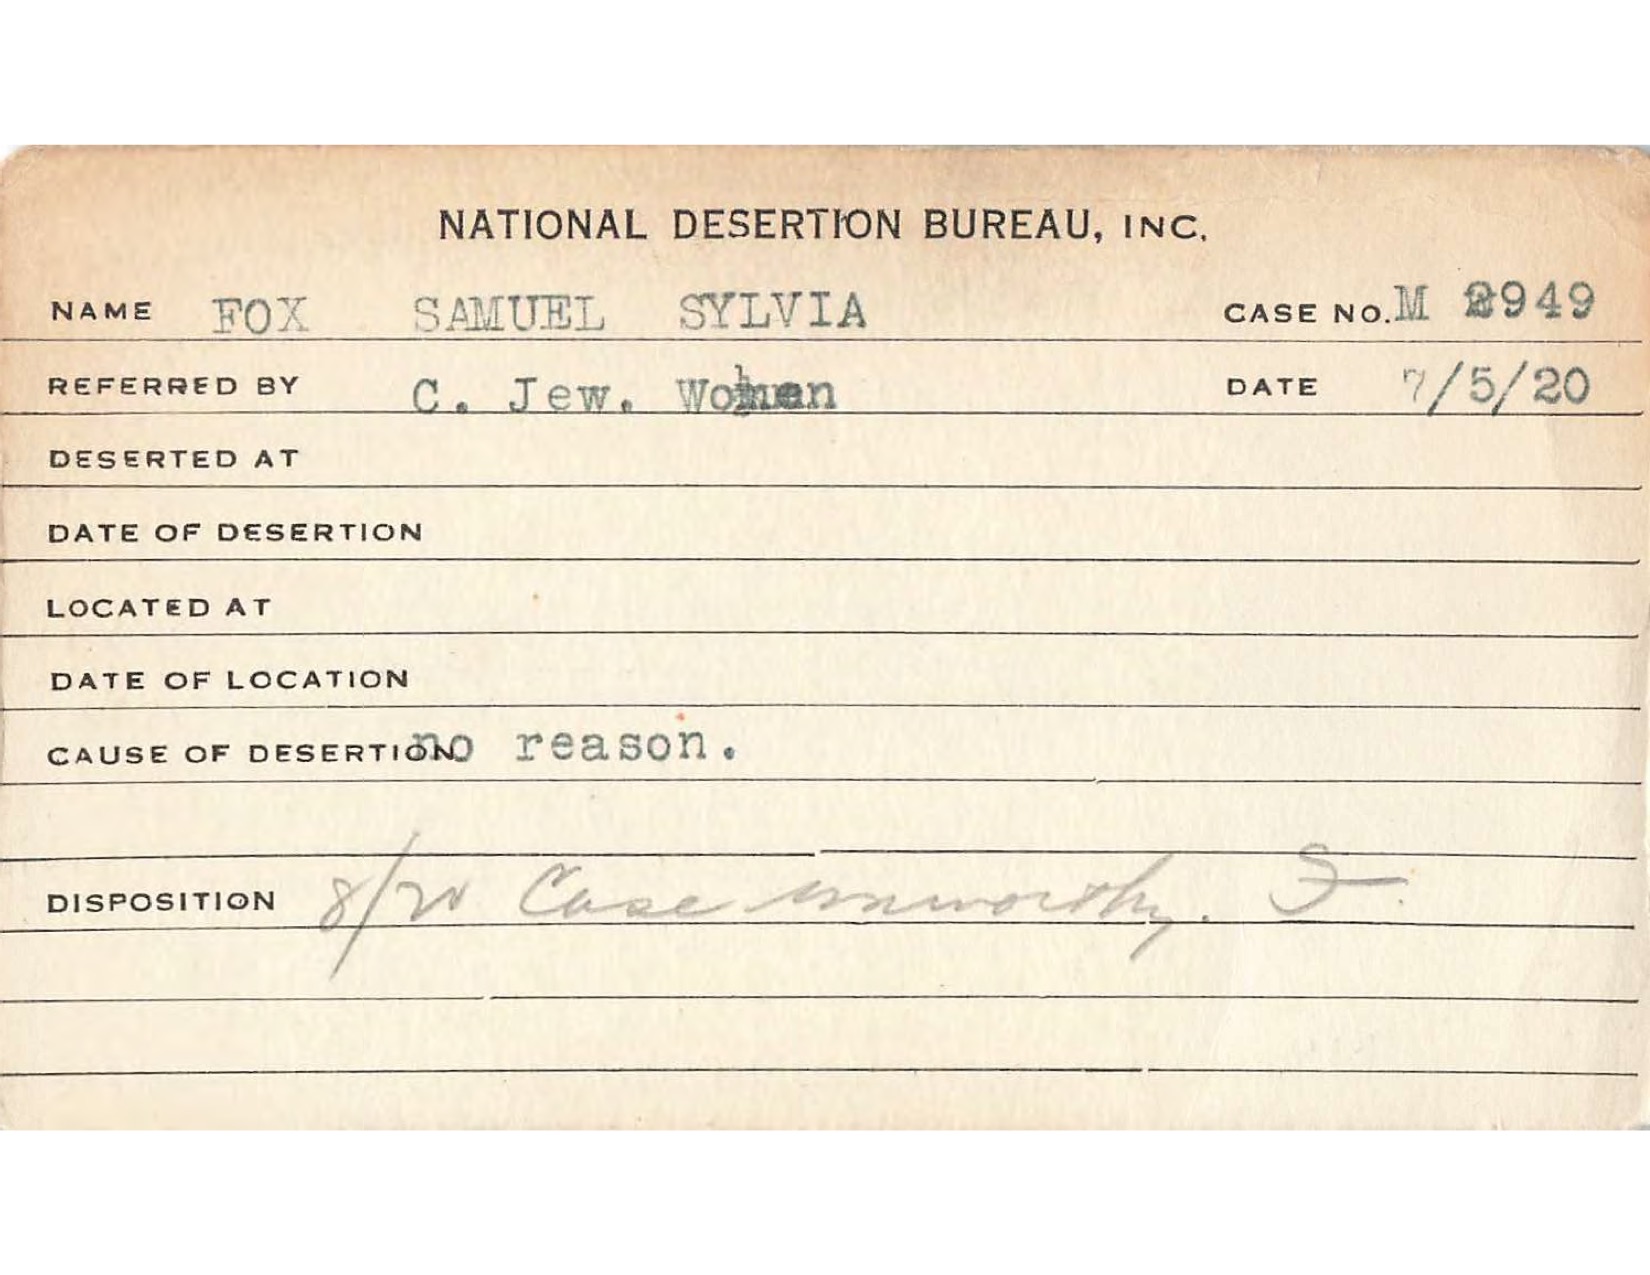 NATIONAL DESERTION BUREAU, INC.
NAME FOX SAMUEL SYLVIA CASE NO. M 2949
REFERRED BY C. Jew. Women DATE 7/5/20
DESERTED AT
DATE OF DESERTION
LOCATED AT
DATE OF LOCATION
CAUSE OF DESERTION no reason.
DISPOSITION 8/20 Case unworthy.